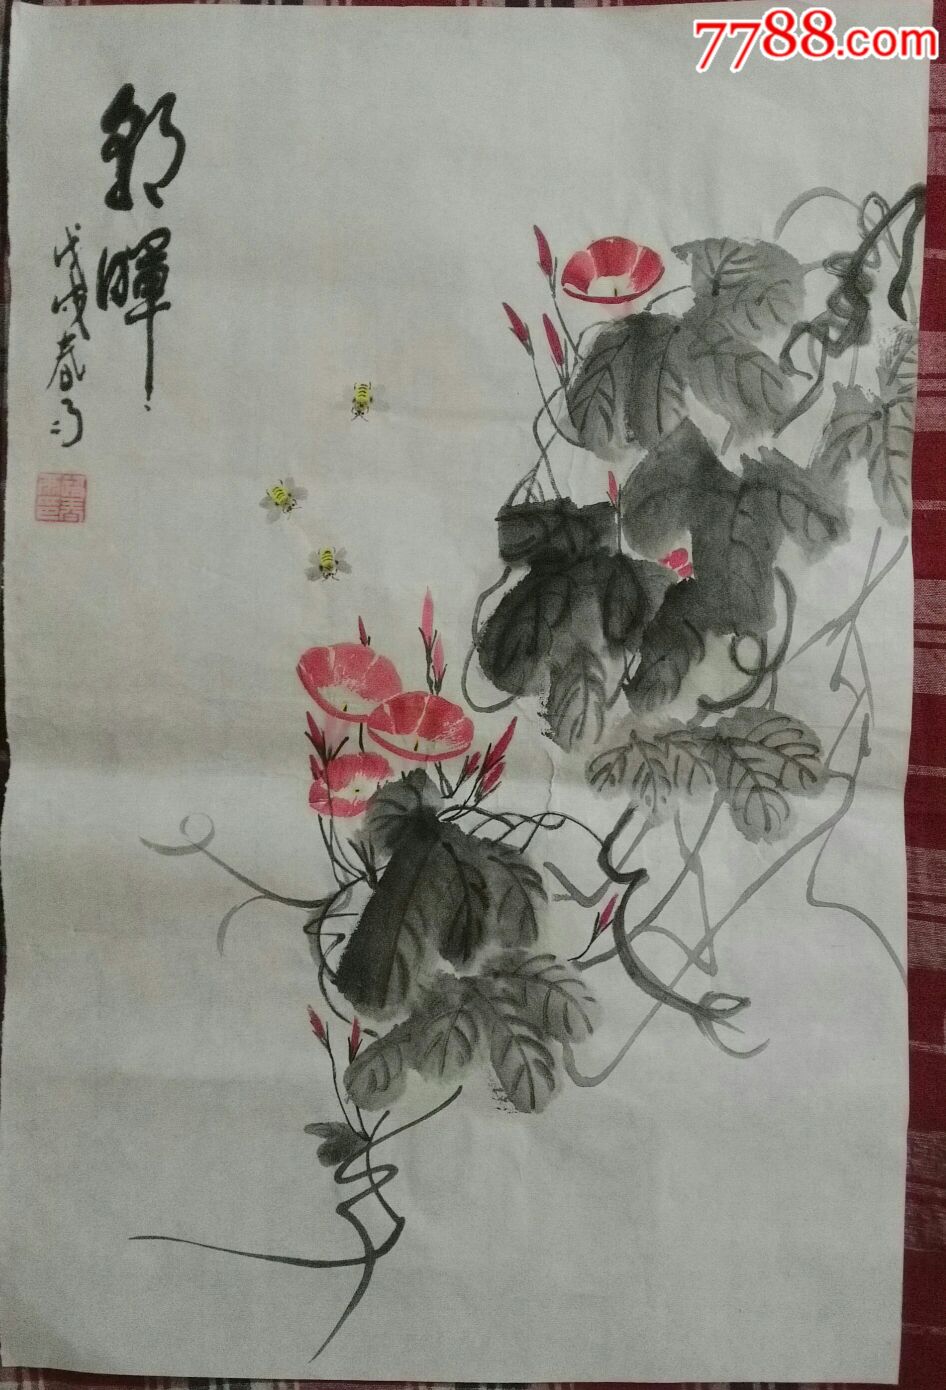 7788.com
朝暉
戊戌春月